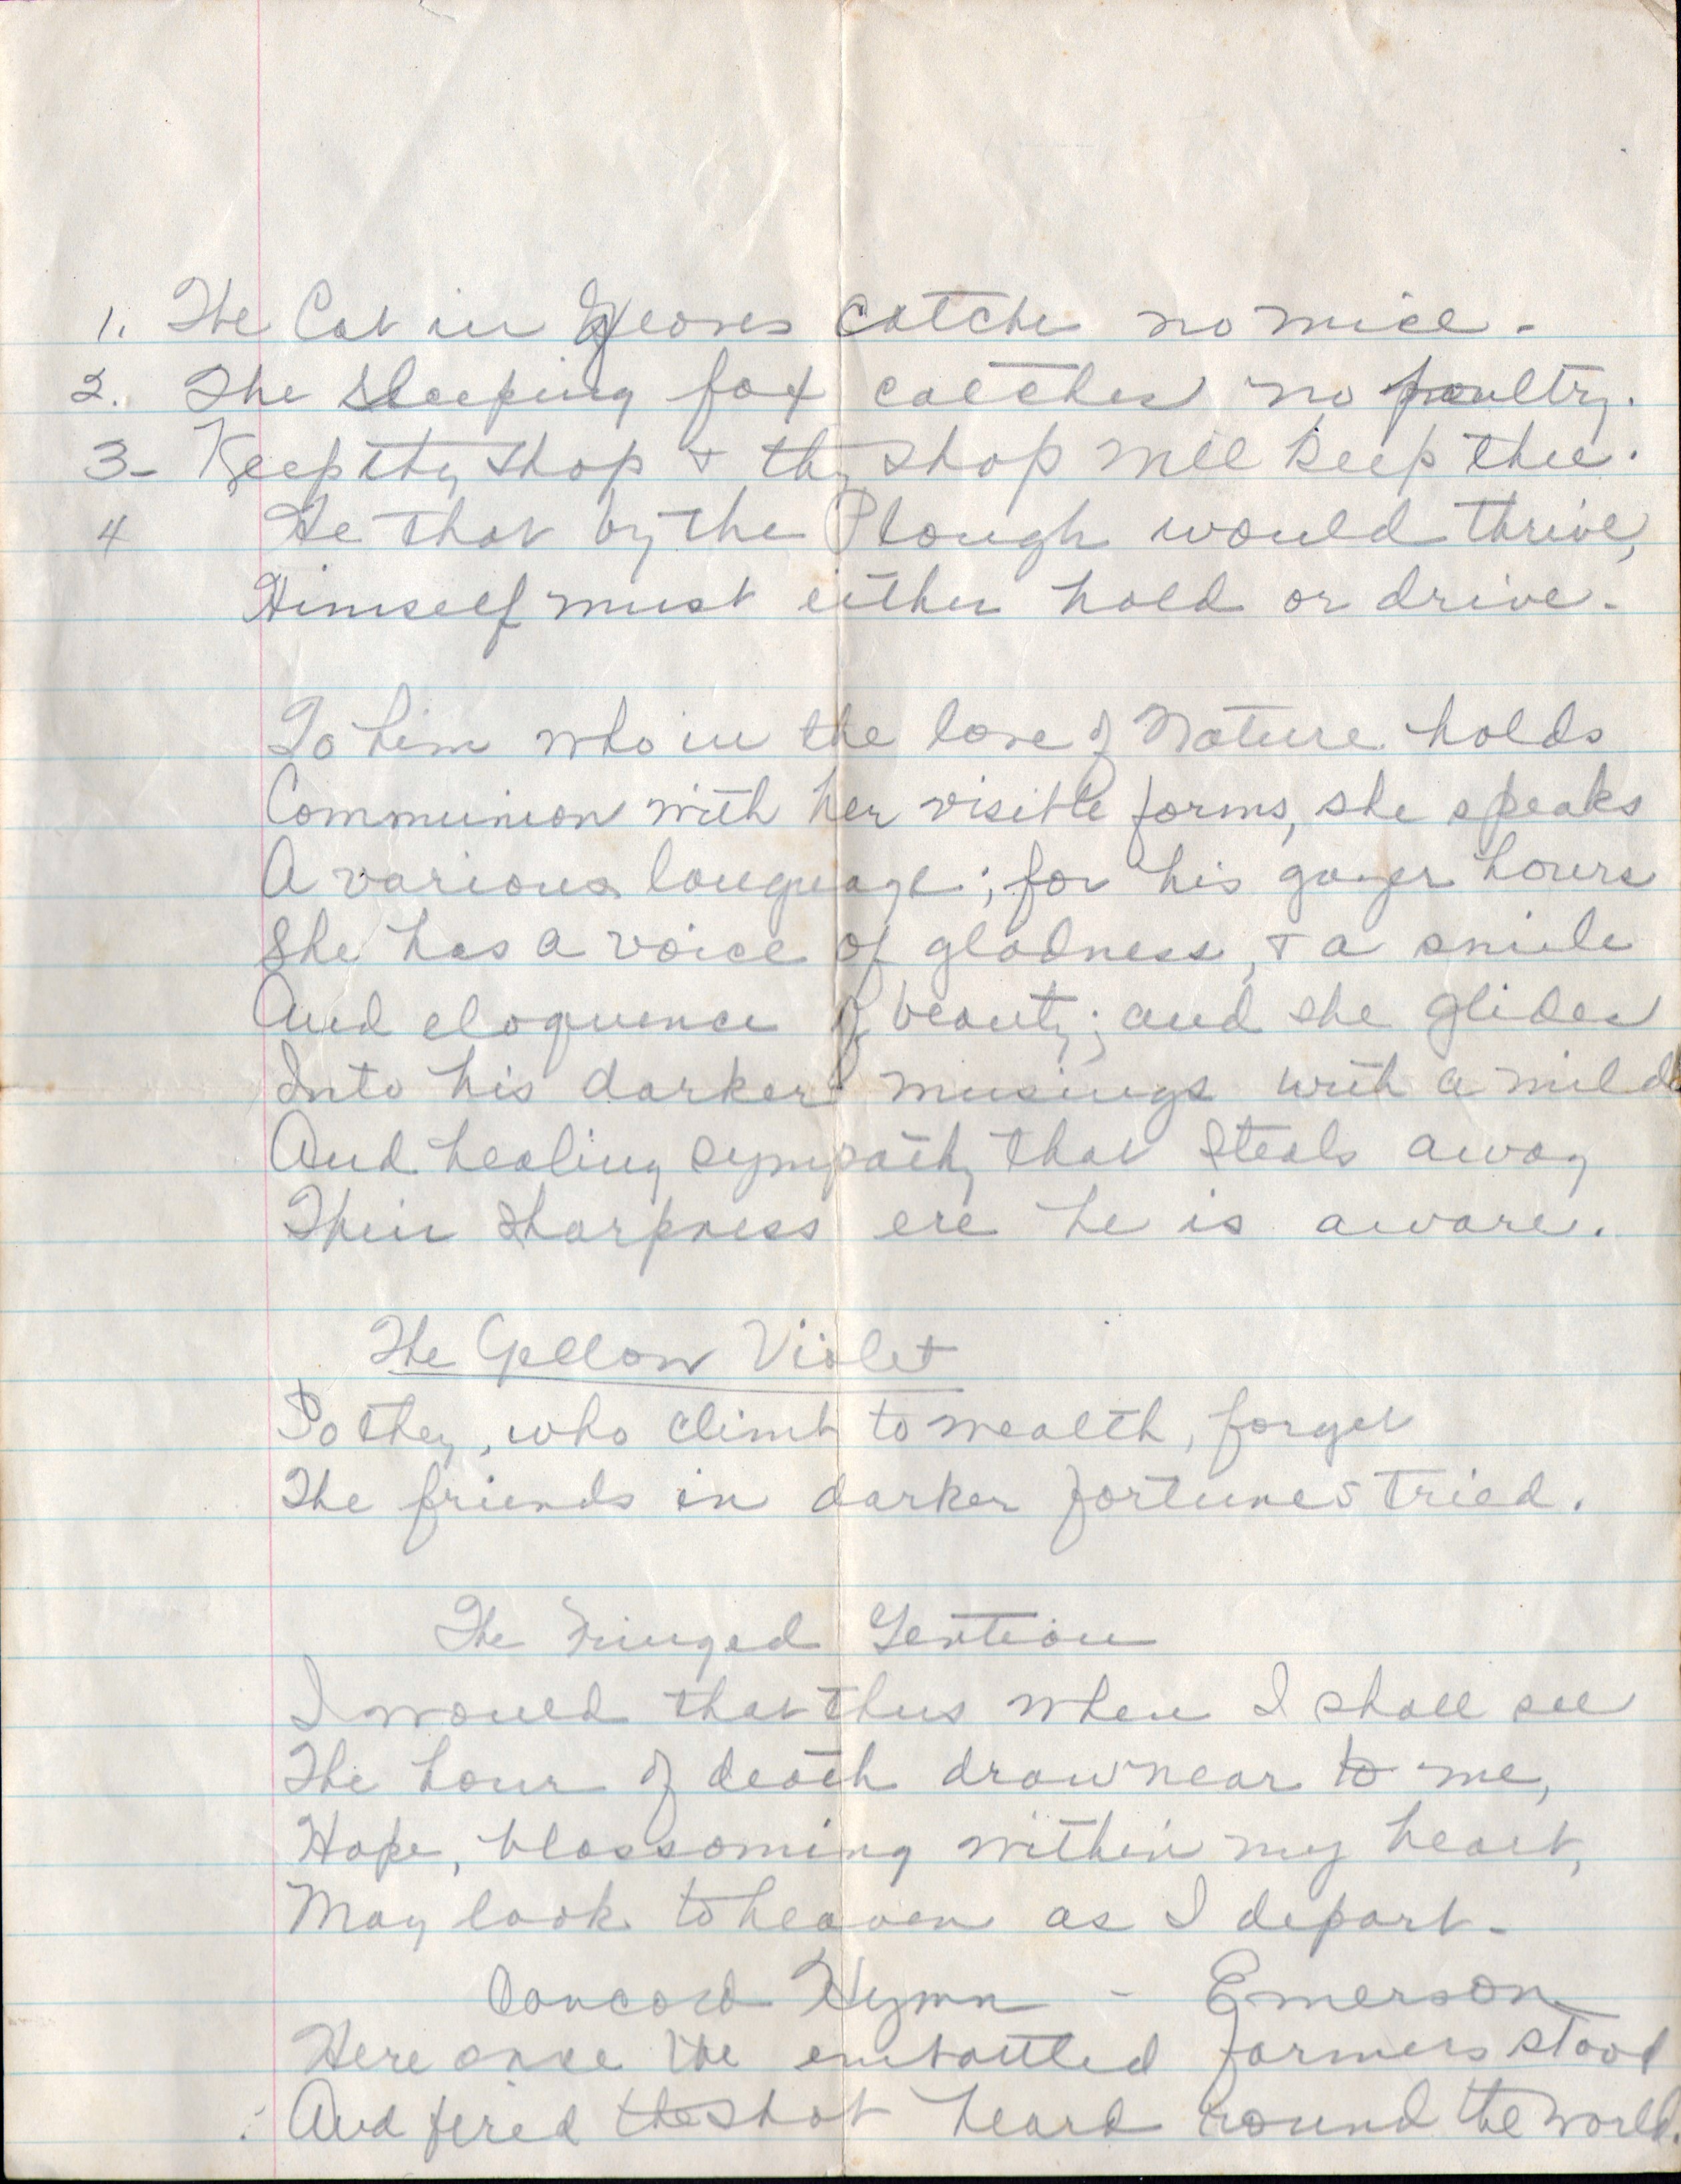 1. The Cat in Gloves catche no mice.
2. The sleeping fox catches no poultry.
3- Keep thy shop & thy shop will keep thee.
4 He that by the Plough would thrive,
Himself must either hold or drive.
To him who in the love of Nature holds
Communion with her visible forms, she speaks
A various language; for his gayer hours
She has a voice of gladness, & a smile
And eloquence of beauty; and she glides
Into his darker musings with a mild
And healing sympathy that steals away
Their sharpness ere he is aware.
The Yellow Violet
So they, who climb to wealth, forget
The friends in darker fortunes tried.
The Fringed Gentian
I would that thus when I shall see
The hour of death draw near to me,
Hope, blossoming within my heart,
May look to heaven as I depart-
Concord Hymn - Emerson
Here once the embattled farmers stood
And fired the shot heard round the world.